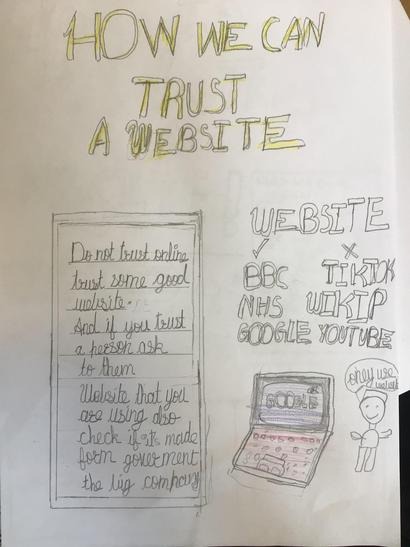 HOW WE CAN
TRUST
A WEBSITE
Do not trust online
trust some good
website.
And if you trust
a person ask
to them
Website that you
are using also
check if its made
form goverment
the big company
WEBSITE
✓ ×
BBC TIKTOK
NHS WIKIP
GOOGLE YOUTUBE
GOOGLE